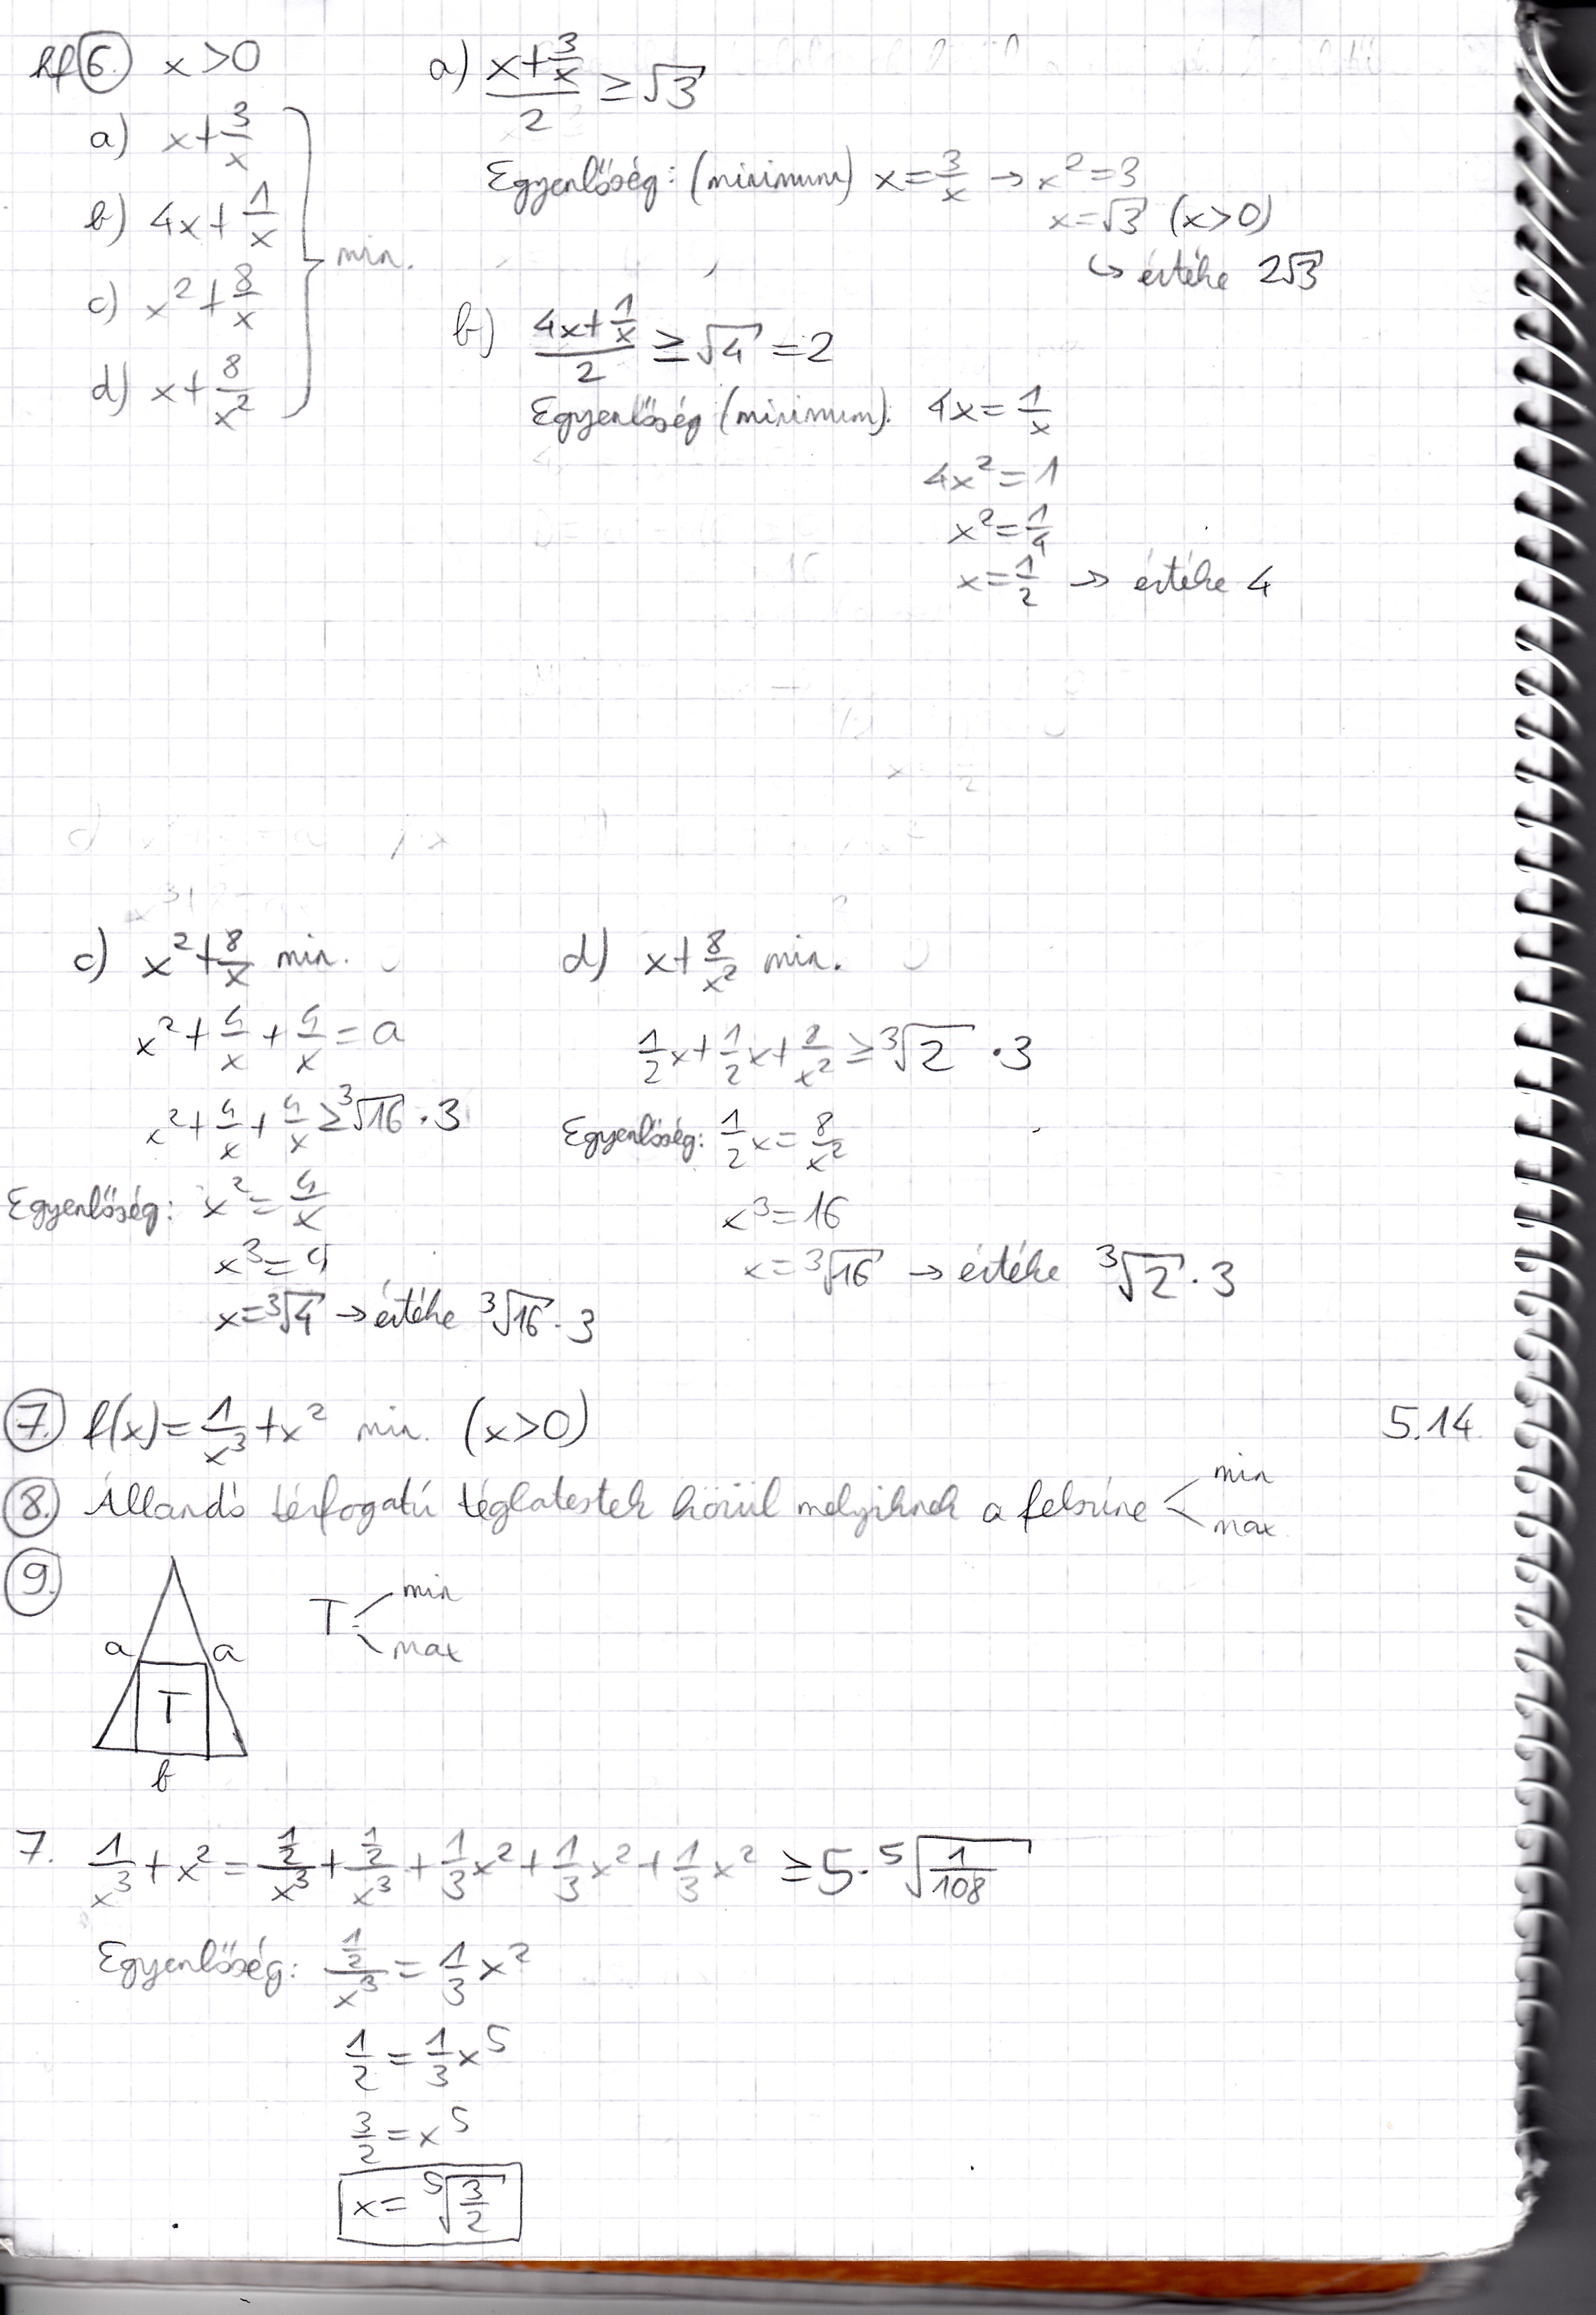 hf 6. x>0
a) x+3/x
b) 4x+1/x
c) x²+8/x
d) x+8/x²
min.
a) (x+3/x)/2 ≥ √3
Egyenlőség: (minimum) x=3/x → x²=3
x=√3 (x>0)
↳ értéke 2√3
b) (4x+1/x)/2 ≥ √4 =2
Egyenlőség (minimum): 4x=1/x
4x²=1
x²=1/4
x=1/2 → értéke 4
c) x²+8/x min.
x²+4/x+4/x=a
x²+4/x+4/x≥³√16·3
Egyenlőség: x²=4/x
x³=4
x=³√4 → értéke ³√16·3
d) x+8/x² min.
1/2x+1/2x+8/x²≥³√2·3
Egyenlőség: 1/2x=8/x²
x³=16
x=³√16 → értéke ³√2·3
7. f(x)=1/x³+x² min. (x>0) 5.14.
8. Állandó térfogatú téglatestek körül melyiknek a felszíne < min
max
9.
T < min
max
a a
T
b
7. 1/x³+x²=(1/2)/x³+(1/2)/x³+1/3x²+1/3x²+1/3x² ≥5·⁵√(1/108)
Egyenlőség: (1/2)/x³=1/3x²
1/2=1/3x⁵
3/2=x⁵
x=⁵√(3/2)